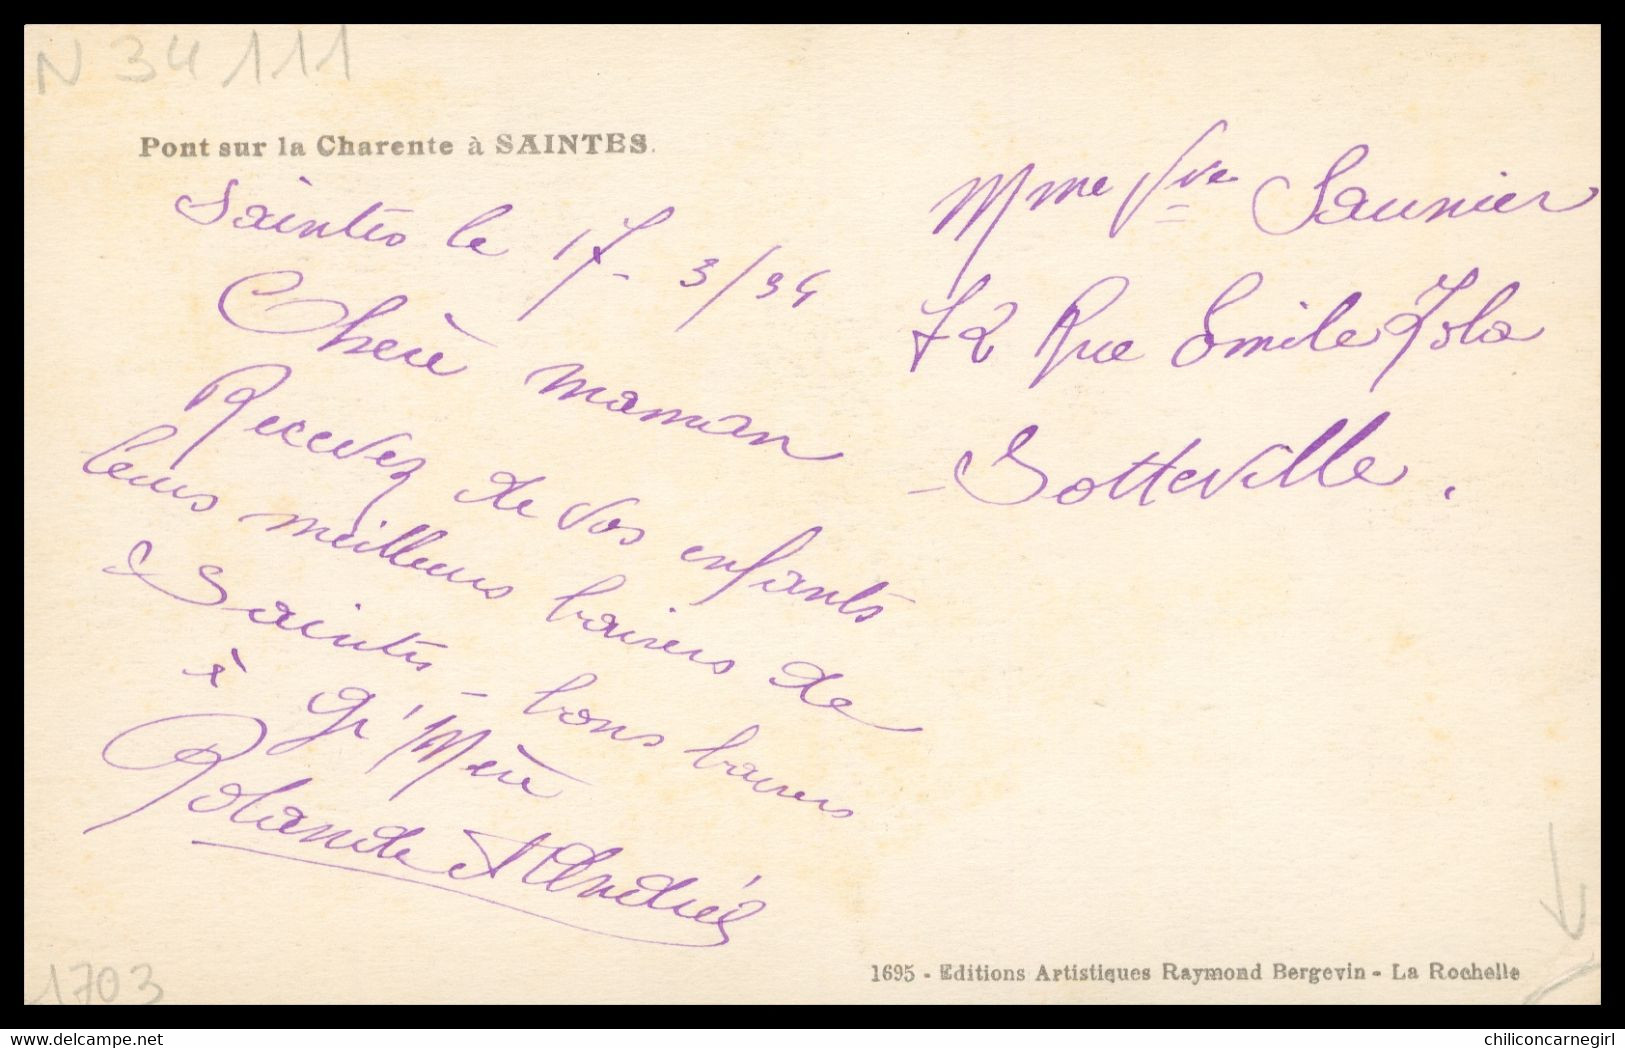 N 34 111
Pont sur la Charente à SAINTES.
Saintes le 17-3/34
Chère maman
Recevez de vos enfants
leurs meilleurs baisers de
Saintes - bons baisers
à Gr' Mère
Rolande et Andrée
Mme Vve Saunier
72 Rue Emile Zola
- Sotteville.
1695 - Editions Artistiques Raymond Bergevin - La Rochelle
1703
www.delcampe.net
chiliconcarnegirl